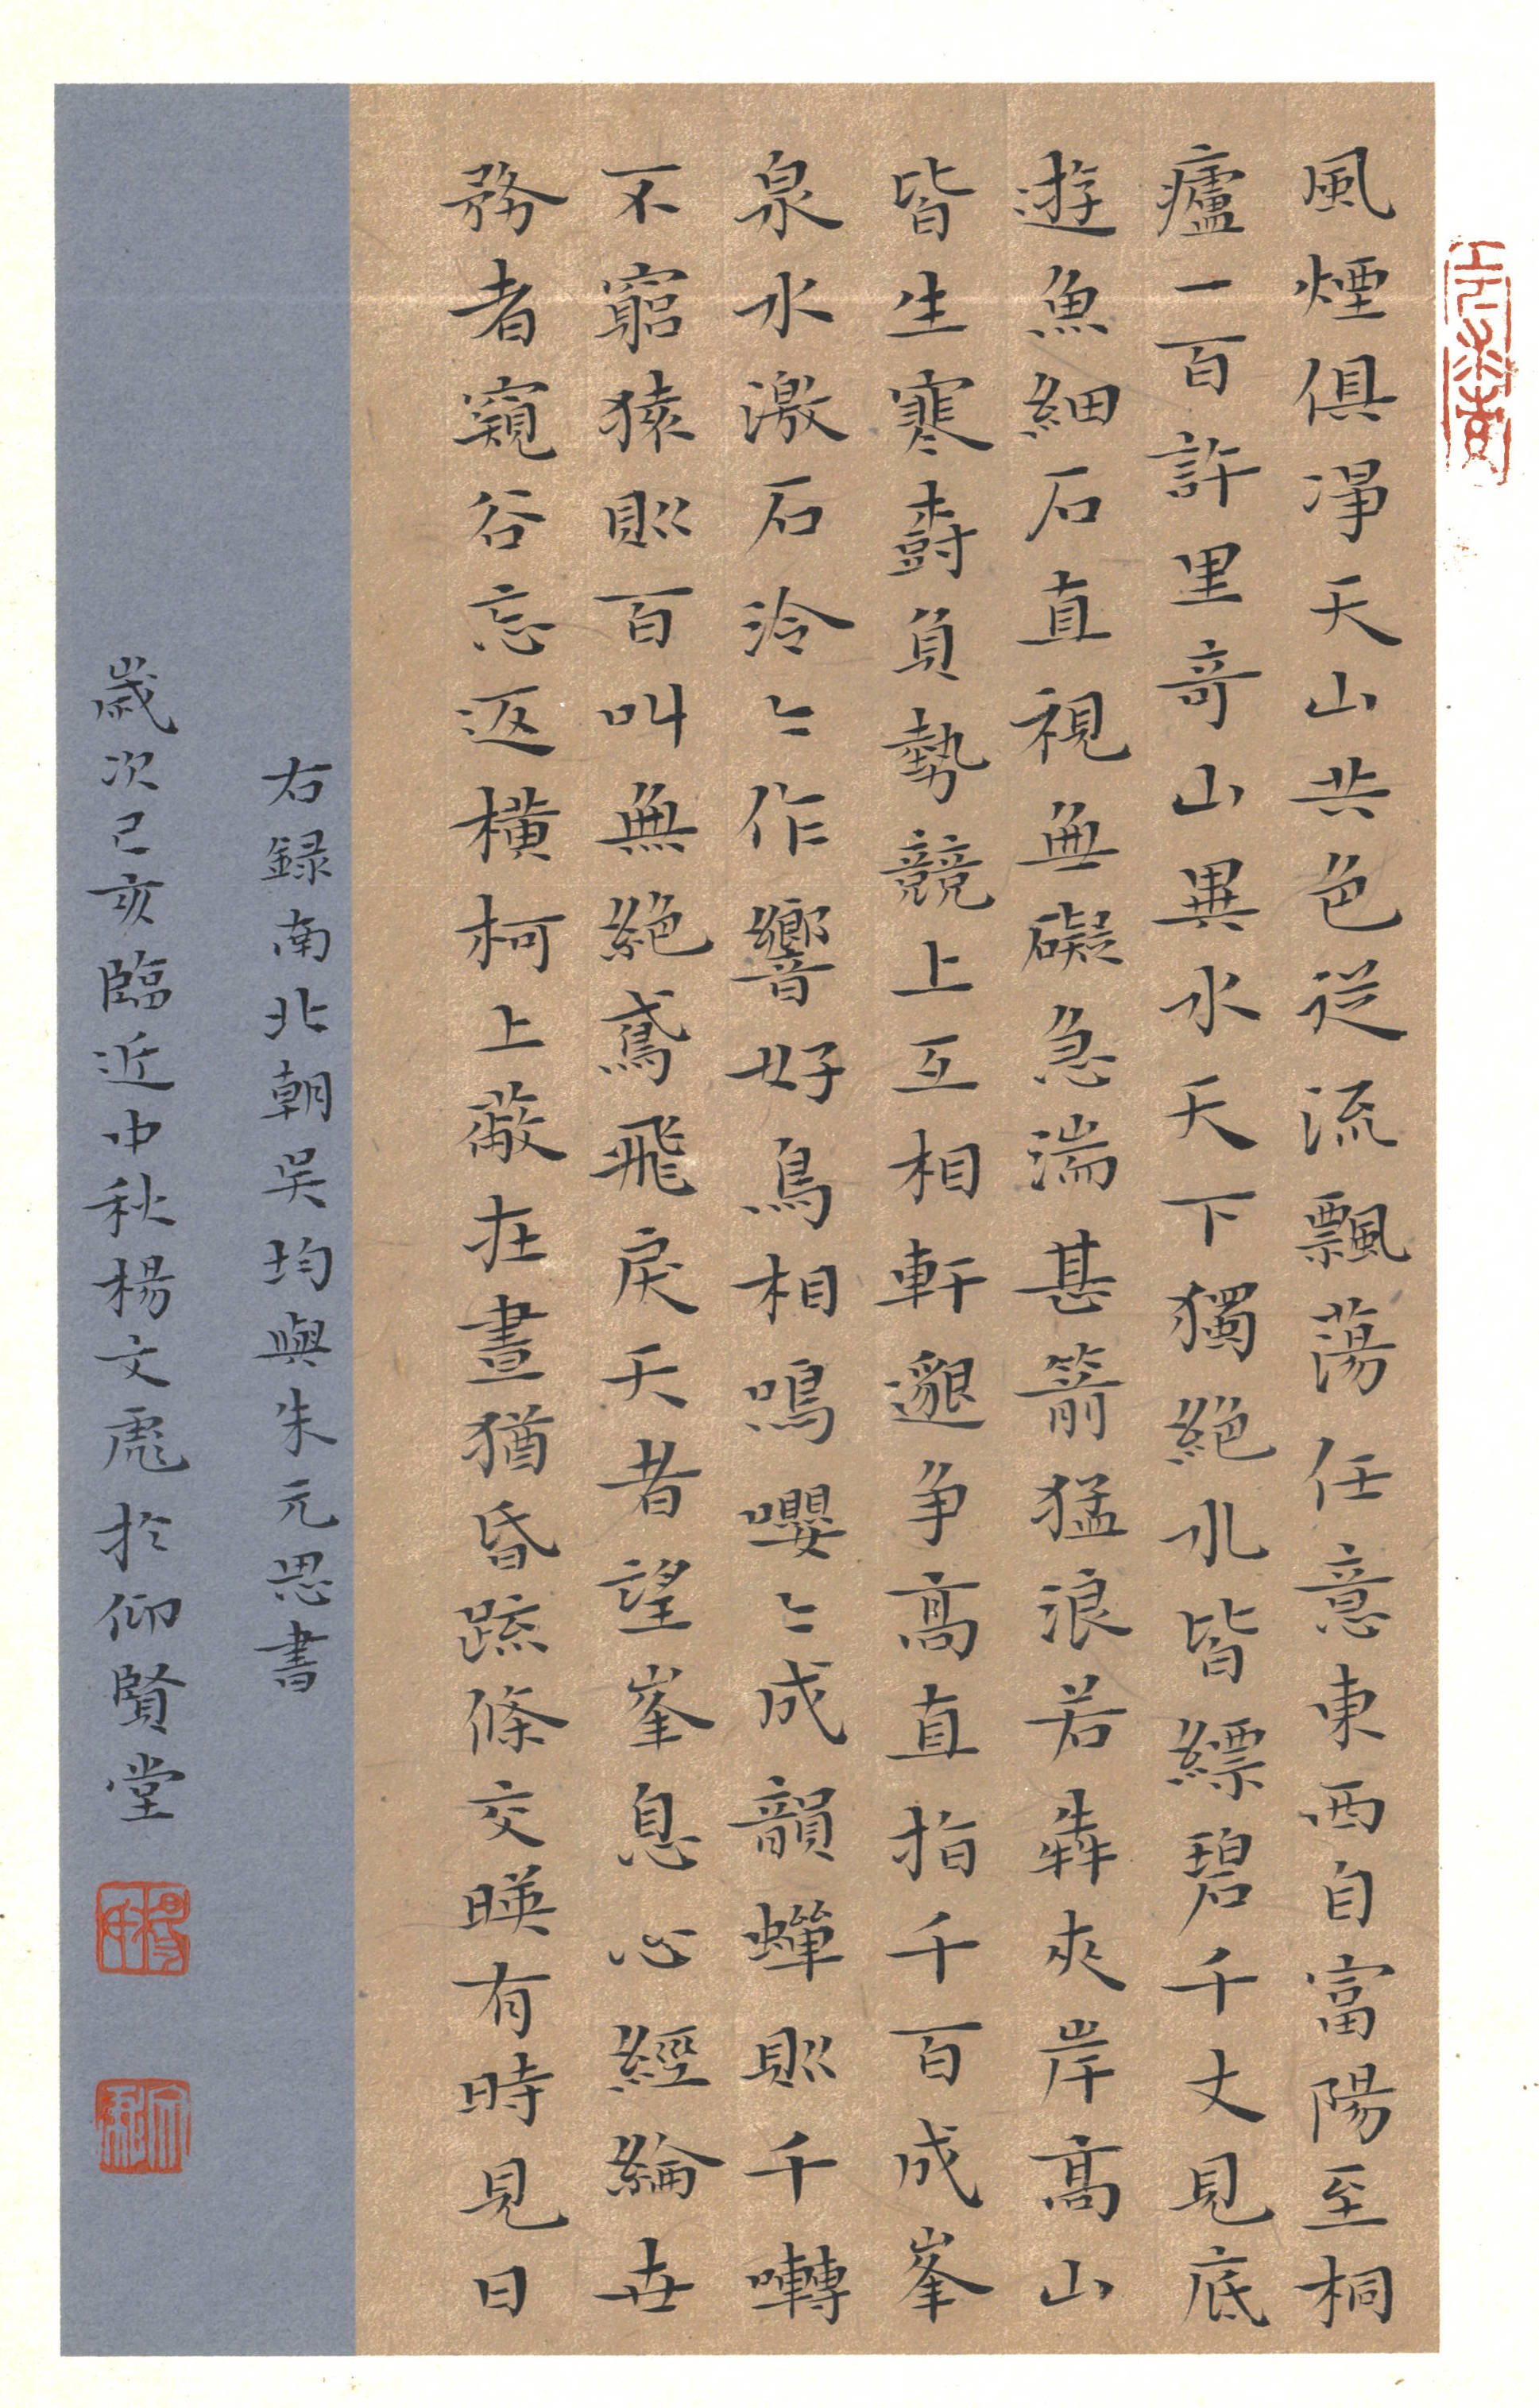 風煙俱凈天山共色從流飄蕩任意東西自富陽至桐
廬一百許里奇山異水天下獨絕水皆縹碧千丈見底
遊魚細石直視無礙急湍甚箭猛浪若犇夾岸高山
皆生寒樹負勢競上互相軒邈爭高直指千百成峯
泉水激石泠〻作響好鳥相鳴嚶〻成韻蟬則千囀
不窮猿則百叫無絕鳶飛戾天者望峯息心經綸世
務者窺谷忘返橫柯上蔽在晝猶昏疏條交暎有時見日
右録南北朝吳均與朱元思書
歲次己亥臨近中秋楊文於仰賢堂